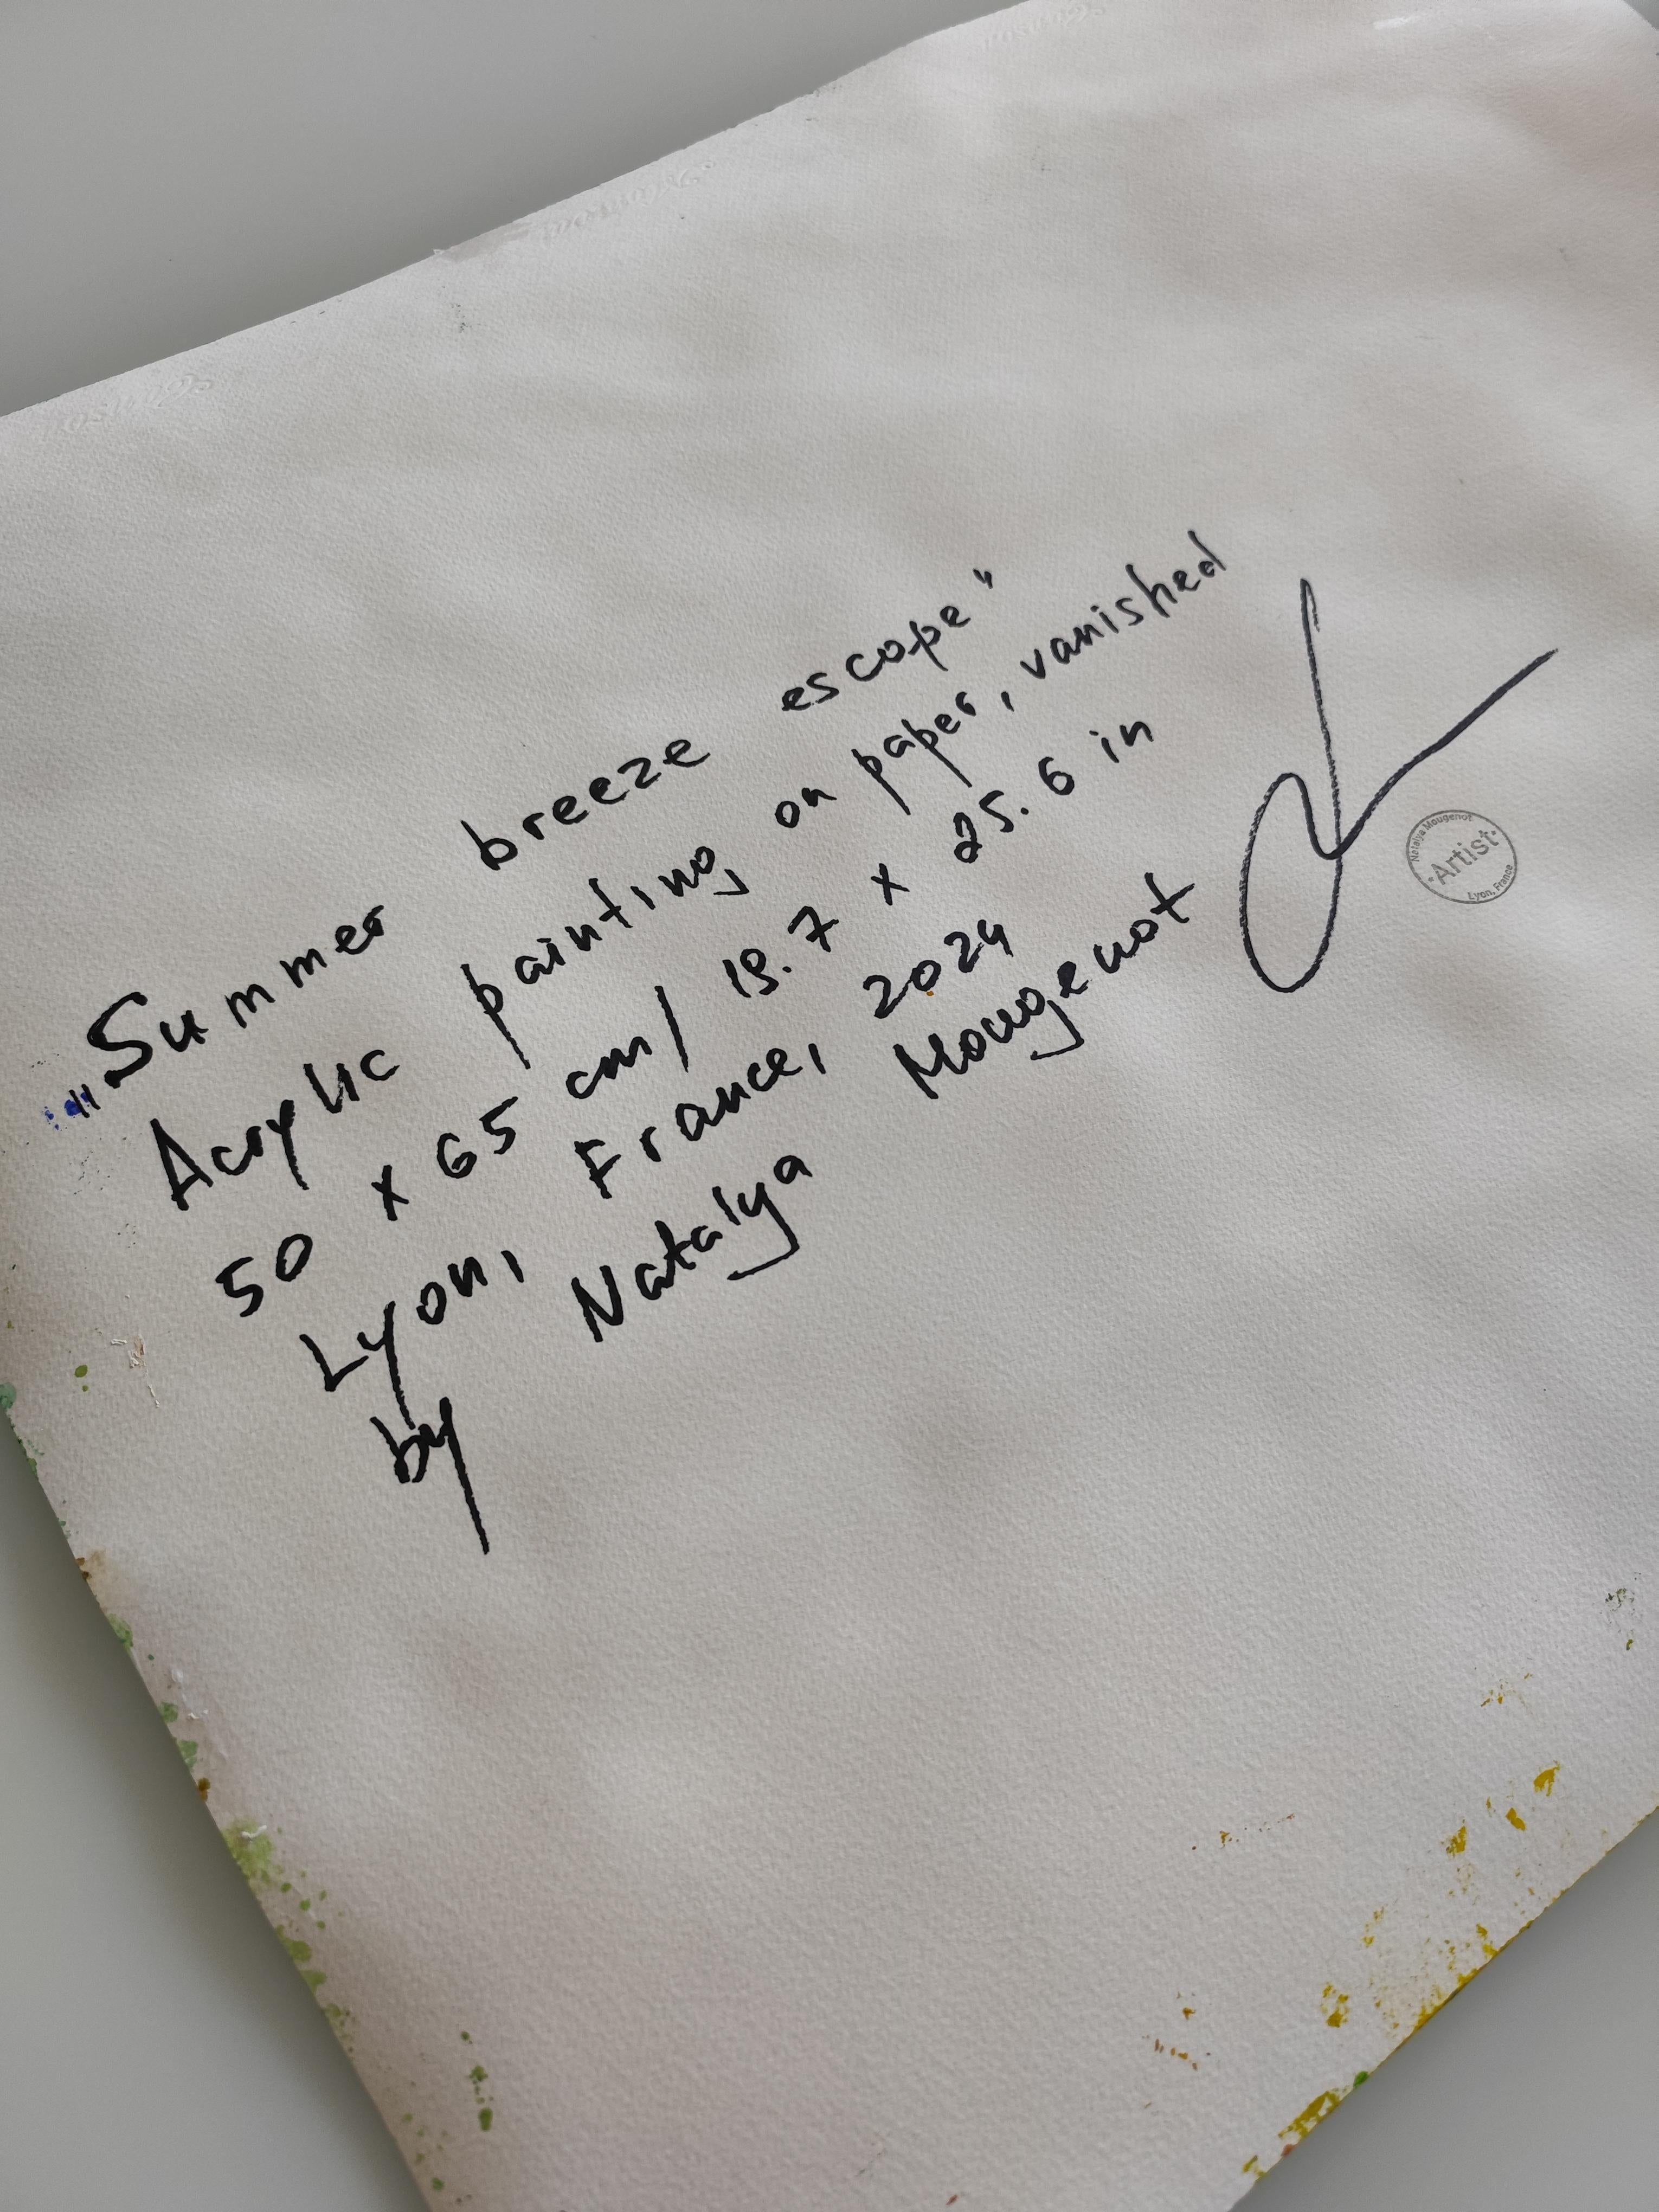 „Summer breeze escape"
Acrylic painting on paper, vanished
50 x 65 cm / 19.7 x 25.6 in
Lyon, France, 2024
by Natalya Mougenot
Natalya Mougenot
·Artist·
Lyon, France